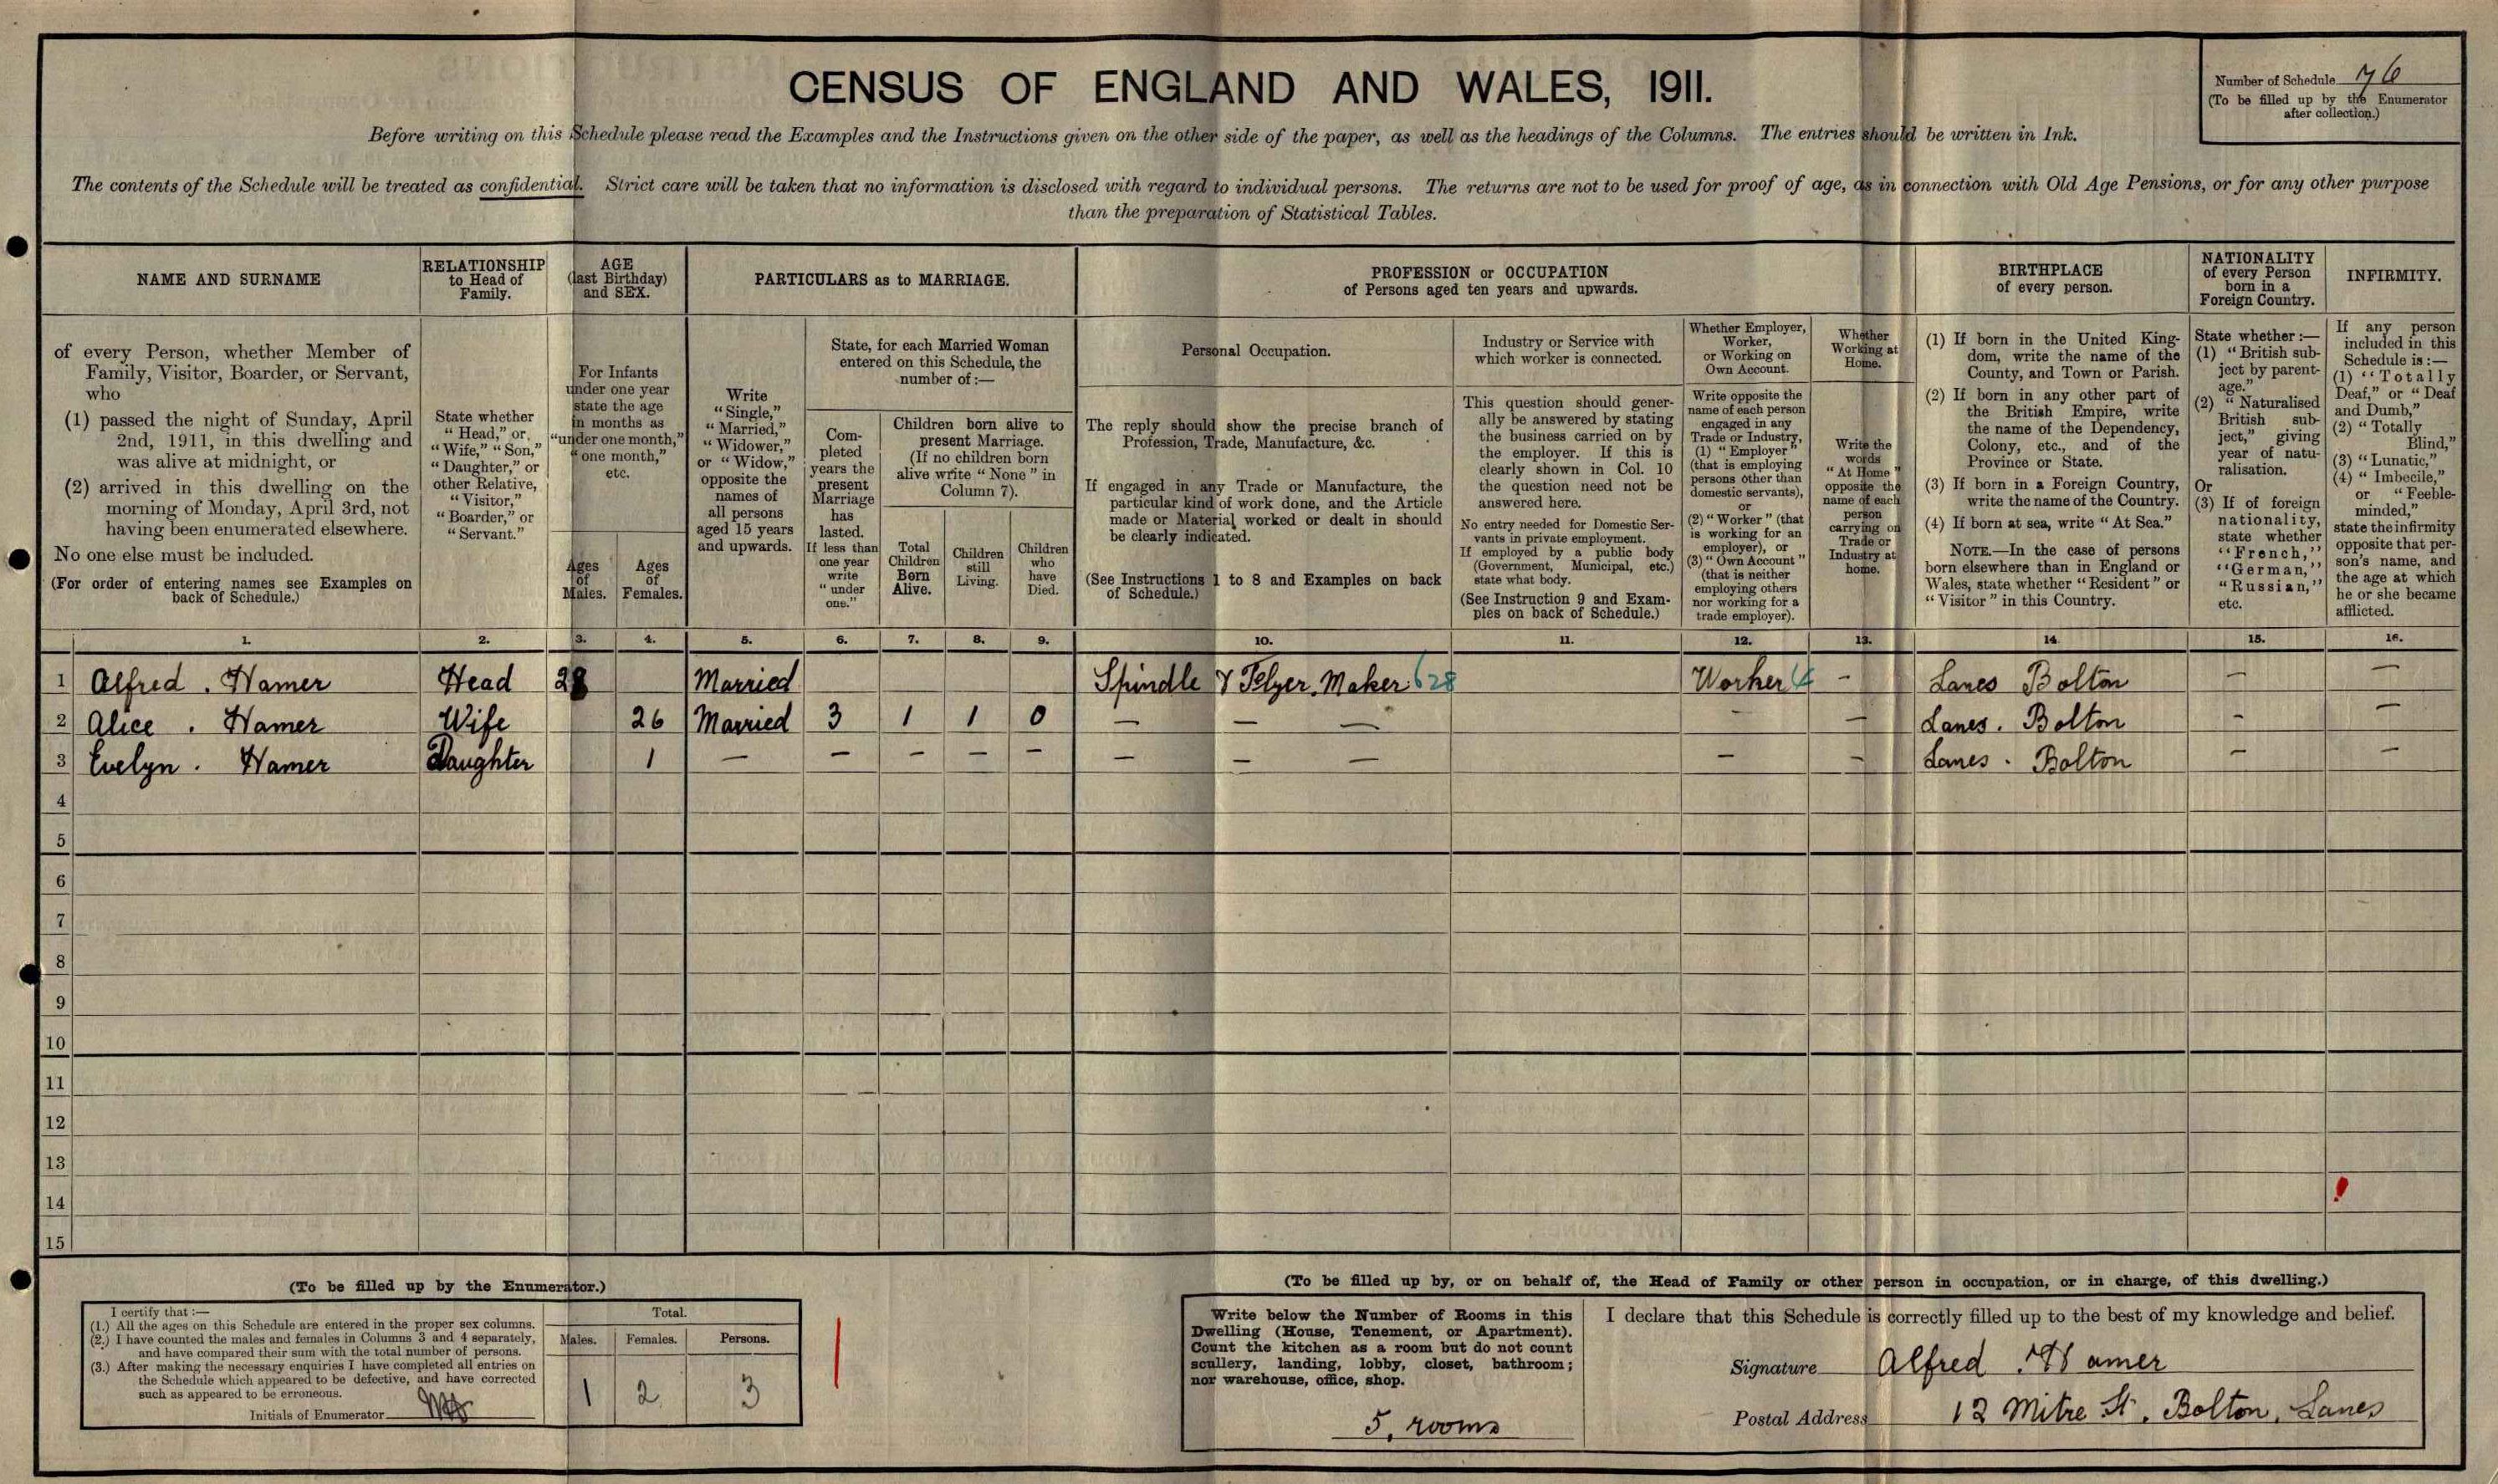 CENSUS OF ENGLAND AND WALES, 1911.
Number of Schedule 76
(To be filled up by the Enumerator
after collection.)
Before writing on this Schedule please read the Examples and the Instructions given on the other side of the paper, as well as the headings of the Columns. The entries should be written in Ink.
The contents of the Schedule will be treated as confidential. Strict care will be taken that no information is disclosed with regard to individual persons. The returns are not to be used for proof of age, as in connection with Old Age Pensions, or for any other purpose
than the preparation of Statistical Tables.
NAME AND SURNAME
of every Person, whether Member of
Family, Visitor, Boarder, or Servant,
who
(1) passed the night of Sunday, April
2nd, 1911, in this dwelling and
was alive at midnight, or
(2) arrived in this dwelling on the
morning of Monday, April 3rd, not
having been enumerated elsewhere.
No one else must be included.
(For order of entering names see Examples on
back of Schedule.)
RELATIONSHIP
to Head of
Family.
State whether
"Head," or
"Wife," "Son,"
"Daughter," or
other Relative,
"Visitor,"
"Boarder," or
"Servant."
AGE
(last Birthday)
and SEX.
For Infants
under one year
state the age
in months as
"under one month,"
"one month,"
etc.
Ages
of
Males.
Ages
of
Females.
PARTICULARS as to MARRIAGE.
Write
"Single,"
"Married,"
"Widower,"
or "Widow,"
opposite the
names of
all persons
aged 15 years
and upwards.
State, for each Married Woman
entered on this Schedule, the
number of :—
Com-
pleted
years the
present
Marriage
has
lasted.
If less than
one year
write
"under
one."
Children born alive to
present Marriage.
(If no children born
alive write "None" in
Column 7).
Total
Children
Born
Alive.
Children
still
Living.
Children
who
have
Died.
PROFESSION or OCCUPATION
of Persons aged ten years and upwards.
Personal Occupation.
The reply should show the precise branch of
Profession, Trade, Manufacture, &c.
If engaged in any Trade or Manufacture, the
particular kind of work done, and the Article
made or Material worked or dealt in should
be clearly indicated.
(See Instructions 1 to 8 and Examples on back
of Schedule.)
Industry or Service with
which worker is connected.
This question should gener-
ally be answered by stating
the business carried on by
the employer. If this is
clearly shown in Col. 10
the question need not be
answered here.
No entry needed for Domestic Ser-
vants in private employment.
If employed by a public body
(Government, Municipal, etc.)
state what body.
(See Instruction 9 and Exam-
ples on back of Schedule.)
Whether Employer,
Worker,
or Working on
Own Account.
Write opposite the
name of each person
engaged in any
Trade or Industry,
(1) "Employer"
(that is employing
persons other than
domestic servants),
or
(2) "Worker" (that
is working for an
employer), or
(3) "Own Account"
(that is neither
employing others
nor working for a
trade employer).
Whether
Working at
Home.
Write the
words
"At Home"
opposite the
name of each
person
carrying on
Trade or
Industry at
home.
BIRTHPLACE
of every person.
(1) If born in the United King-
dom, write the name of the
County, and Town or Parish.
(2) If born in any other part of
the British Empire, write
the name of the Dependency,
Colony, etc., and of the
Province or State.
(3) If born in a Foreign Country,
write the name of the Country.
(4) If born at sea, write "At Sea."
NOTE.—In the case of persons
born elsewhere than in England or
Wales, state whether "Resident" or
"Visitor" in this Country.
NATIONALITY
of every Person
born in a
Foreign Country.
State whether :—
(1) "British sub-
ject by parent-
age."
(2) "Naturalised
British sub-
ject," giving
year of natu-
ralisation.
Or
(3) If of foreign
nationality,
state whether
"French,"
"German,"
"Russian,"
etc.
INFIRMITY.
If any person
included in this
Schedule is :—
(1) "Totally
Deaf," or "Deaf
and Dumb,"
(2) "Totally
Blind,"
(3) "Lunatic,"
(4) "Imbecile,"
or "Feeble-
minded,"
state the infirmity
opposite that per-
son's name, and
the age at which
he or she became
afflicted.
1. 2. 3. 4. 5. 6. 7. 8. 9. 10. 11. 12. 13. 14. 15. 16.
1 Alfred . Hamer Head 28 Married Spindle & Flyer Maker 628 Worker 4 - Lancs Bolton — —
2 Alice . Hamer Wife 26 Married 3 1 1 0 — — — - — Lancs . Bolton - —
3 Evelyn . Hamer Daughter 1 — — — — — — — — — — Lancs . Bolton — —
4
5
6
7
8
9
10
11
12
13
14
15
(To be filled up by the Enumerator.)
I certify that :—
(1.) All the ages on this Schedule are entered in the proper sex columns.
(2.) I have counted the males and females in Columns 3 and 4 separately,
and have compared their sum with the total number of persons.
(3.) After making the necessary enquiries I have completed all entries on
the Schedule which appeared to be defective, and have corrected
such as appeared to be erroneous.
Initials of Enumerator
Total.
Males. Females. Persons.
1 2 3
(To be filled up by, or on behalf of, the Head of Family or other person in occupation, or in charge, of this dwelling.)
Write below the Number of Rooms in this
Dwelling (House, Tenement, or Apartment).
Count the kitchen as a room but do not count
scullery, landing, lobby, closet, bathroom;
nor warehouse, office, shop.
5, rooms
I declare that this Schedule is correctly filled up to the best of my knowledge and belief.
Signature Alfred . Hamer
Postal Address 12 Mitre St, Bolton, Lancs